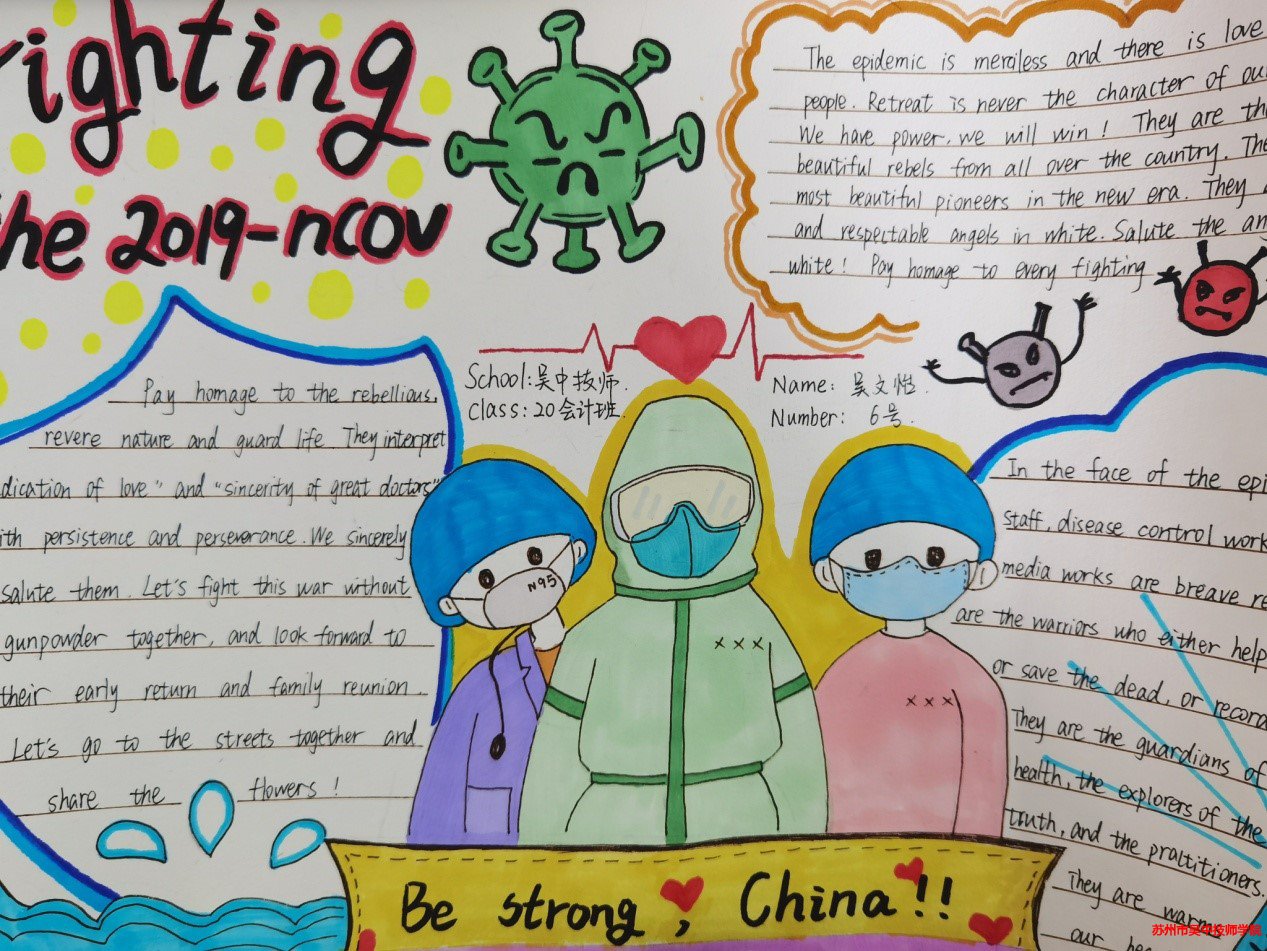 Fighting
the 2019-nCOV
The epidemic is merciless and there is love
people. Retreat is never the character of our
We have power. we will win! They are the
beautiful rebels from all over the country. The
most beautiful pioneers in the new era. They
and respectable angels in white. Salute the an
white! Pay homage to every fighting
School: 吴中技师.
Class: 20会计班.
Name: 吴文怡.
Number: 6号.
Pay homage to the rebellious,
revere nature and guard life. They interpret
dication of love" and "sincerity of great doctors"
ith persistence and perseverance. We sincerely
salute them. Let's fight this war without
gunpowder together, and look forward to
their early return and family reunion.
Let's go to the streets together and
share the flowers!
N95
In the face of the epi
staff, disease control work
media works are breave re
are the warriors who either help
or save the dead, or record
They are the guardians of
health, the explorers of the
truth, and the practitioners.
They are warm
our
XXX
XXX
Be strong, China!!
苏州市吴中技师学院